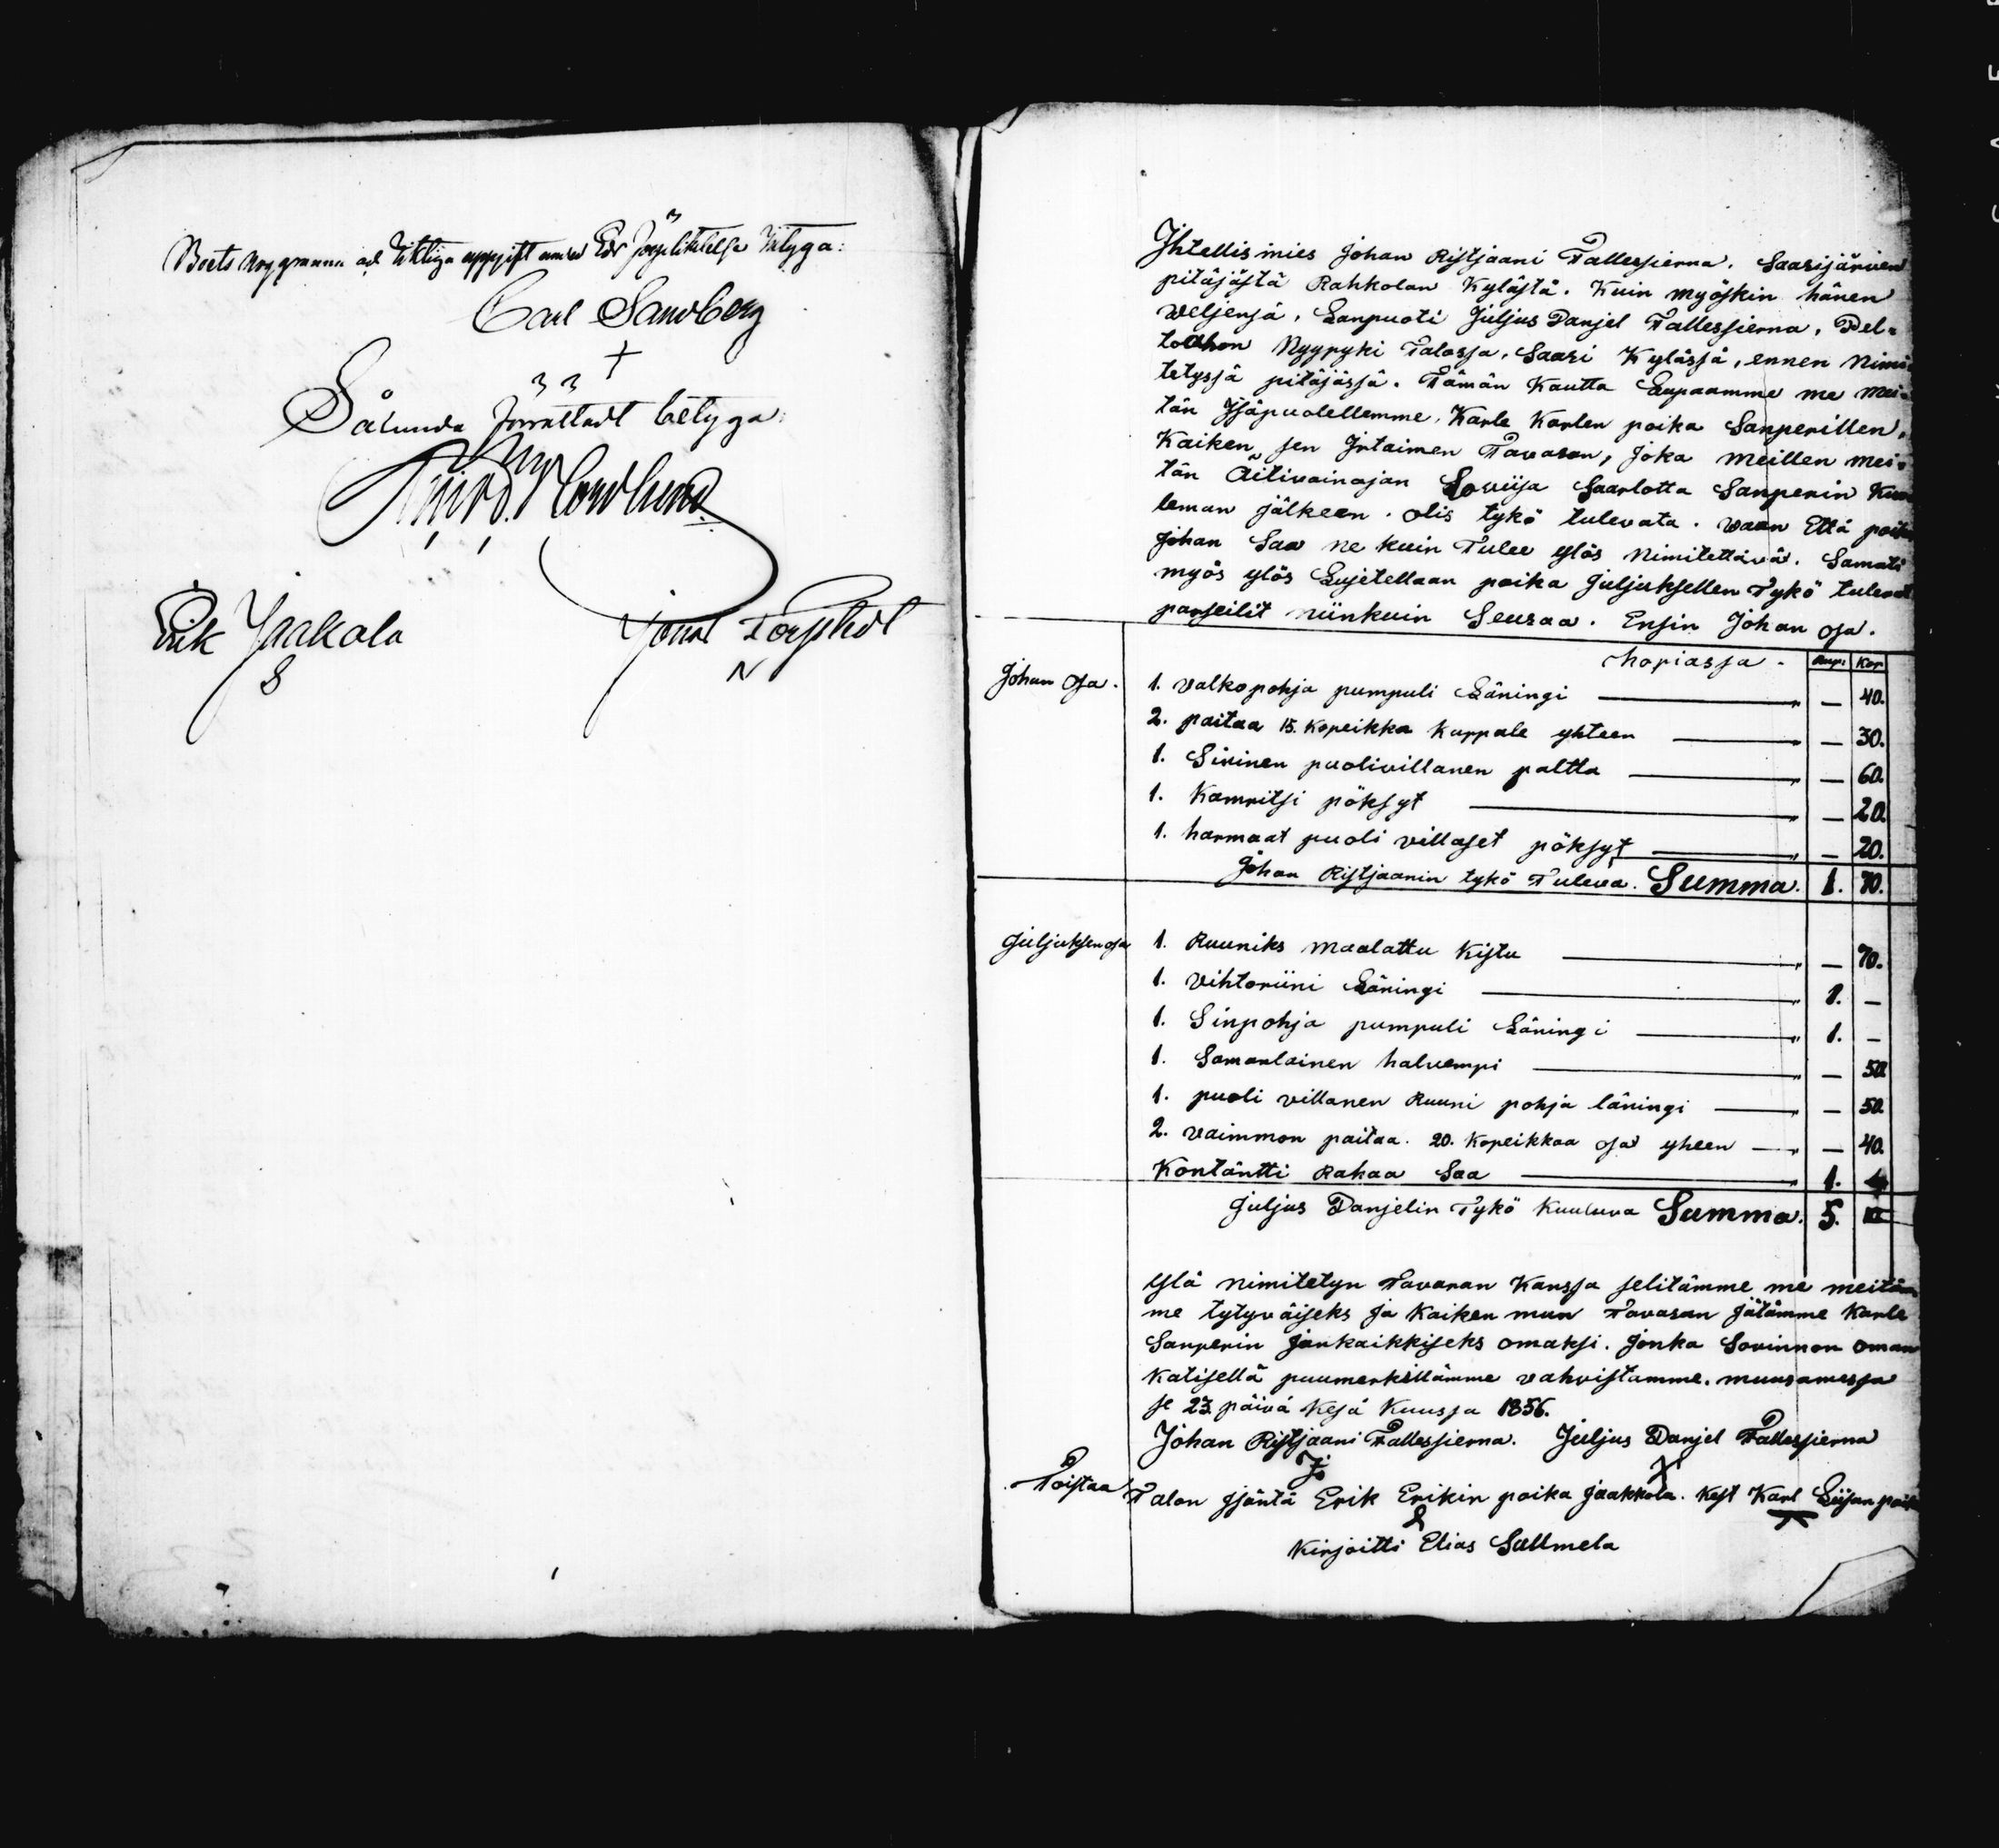 Boets noggranna och riktiga uppgift under Eds förpliktelse intyga:
Carl Sandberg
Sålunda förrättadt betyga:
Nordlund
Erik Jaakola
Jonas
Ihtellismies Johan Ristjaani Tallessierna. Saarijärven
pitäjästä Rahkolan Kylästä. Kuin myöskin hänen
Weljensä, Lanpuoti Juljus Danjel Tallessierna, Pel-
toahon Nyyryki Talossa, Saari Kylässä, ennen nimi-
tetyssä pitäjässä. Tämän Kautta Lupaamme me mei-
tän Isäpuolellemme, Karle Karlen poika Sanperillen,
Kaiken sen Irtaimen Tavaran, joka meillen mei-
tän Äitivainajan Loviisa Saarlotta Sanperin Kuo
leman jälkeen. olis tykö tulevata. vaan Että poika
Johan Saa ne kuin Tulee ylös nimitettävä. Samati
myös ylös Lujetellaan poika Juljuksellen Tykö tulevat
parseilit niinkuin Seuraa. Ensin Johan osa.
hopiassa. Rup: Kop
Johan osa. 1. valkopohja pumpuli Läningi — 40.
2. paitaa 15. Kopeikka Kappale yhteen — 30.
1. Sininen puolivillanen paltta — 60.
1. Kamritsi pöksyt — 20.
1. harmaat puoli villaset pöksyt — 20.
Johan Ristjaanin tykö Tuleva. Summa. 1. 70.
Juljuksen osa 1. Ruuniks maalattu Kistu — 70.
1. vihtoriini Läningi 1. —
1. Sinpohja pumpuli Läningi 1. —
1. Samanlainen halvempi — 50.
1. puoli villanen Ruuni pohja läningi — 50.
2. vaimmon paitaa. 20. Kopeikkaa osa yheen — 40.
Kontäntti Rahaa Saa 1. 4
Juljus Danjelin Tykö Kuuluva Summa. 5.
Ylä nimitetyn Tavaran Kanssa selitämme me meitäm
me tytyväiseks ja Kaiken mun Tavaran Jätämme Karle
Sanperin jankaikkiseks omaksi. Jonka Sovinnon oman
Kätisellä puumerkillämme vahvistamme. muuramessa
se 23. päivä Kesä Kuussa 1856.
Johan Ristjaani Tallessierna. Juljus Danjel Tallessierna
Toistaa Talon Isäntä Erik Erikin poika Jaakkola. Kest Karl Liisan poika
Kirjoitti Elias Sallmela